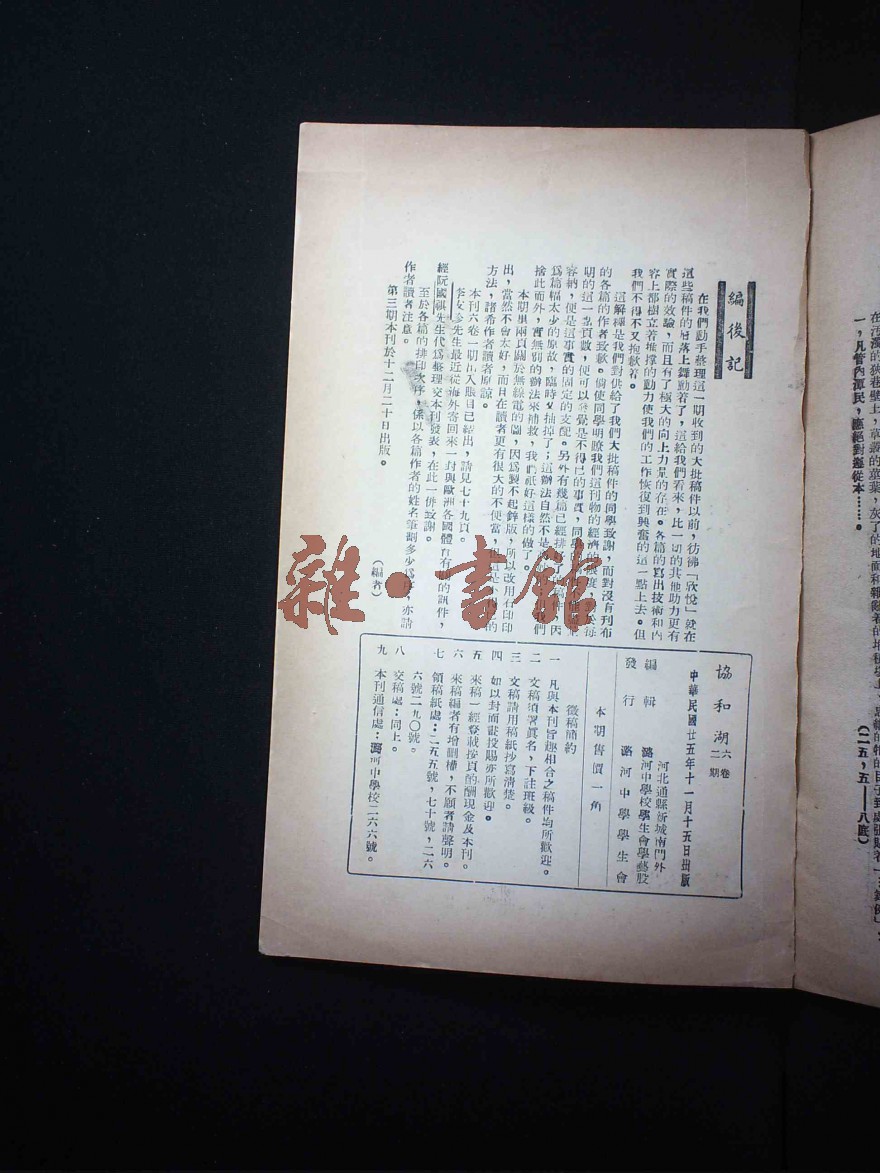 編後記
在我們動手整理這一期收到的大批稿件以前，彷彿「欣悅」就在
這些稿件的層落上舞動着了，這給我們看來，比一切的其他助力更有
實際的效驗，而且有了極大的向上力量的存在。各篇的寫出技術和內
容上都樹立着堆撐的動力使我們的工作恢復到興奮的這一點上去。但
我們不得不又抱歉着。
這解釋是我們對供給了我們大批稿件的同學致謝，而對沒有刊布
的各篇的作者致歉。倘使同學明瞭我們這刊物的經濟的
期的這一點頁數，便可以發覺是不得已的事實，同學
容納，便是這事實的固定的支配。另外有幾篇已經排好
爲篇幅太少的原故，臨時又抽掉了；這辦法自然不是
捨此而外，實無別的辦法來補救，我們祇好這樣的做了。
本期里兩頁關於無線電的圖，因爲製不起鋅版，所以改用石印印
出，當然不會太好，而且在讀者更有很大的不便當，
方法，諸希作者讀者原諒。
本刊六卷一期出入賬目已結出，請見七十九頁。
先生最近從海外寄回來一封與歐洲各國體育有關的訊件，
經阮國祺先生代爲整理交本刊發表，在此一併致謝。
至於各篇的排印次序，係以各篇作者的姓名筆劃多少爲序，亦請
作者讀者注意。
第三期本刊於十二月二十日出版。
（編者）
協和湖 六卷二期
中華民國廿五年十一月十五日出版
河北通縣新城南門外
編輯 潞河中學校學生會學藝股
發行 潞河中學學生會
本期售價一角
徵稿簡約
一 凡與本刊旨趣相合之稿件均所歡迎。
二 文稿須署眞名，下註班級。
三 文稿請用稿紙抄寫清楚。
四 如以封面畫投賜亦所歡迎。
五 來稿一經登載按頁酌酬現金及本刊。
六 來稿編者有增删權，不願者請聲明。
七 領稿紙處：二五五號，七十號，二六
六號二九〇號。
八 交稿處：同上。
九 本刊通信處：潞河中學校二六六號。
一，凡管內潭民，應絕對遵從本……。
（二五，五——八底）
雜·書館